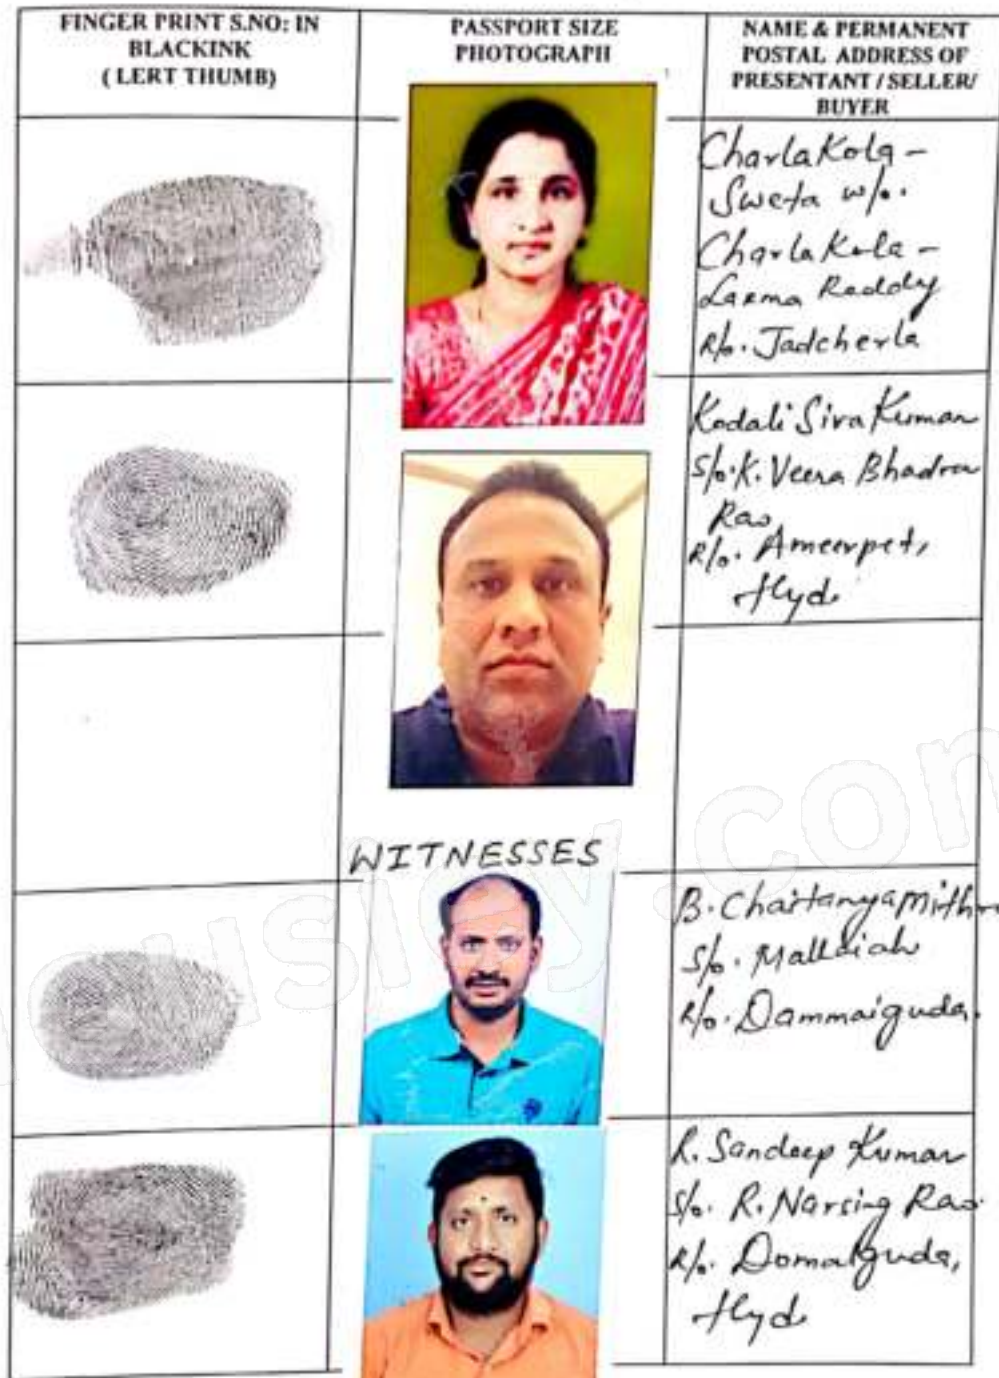 FINGER PRINT S.NO: IN
BLACKINK
( LERT THUMB)
PASSPORT SIZE
PHOTOGRAPH
NAME & PERMANENT
POSTAL ADDRESS OF
PRESENTANT / SELLER/
BUYER
CharlaKola –
Sweta w/o.
CharlaKola –
Laxma Reddy
R/o. Jadcherla
Kodali Siva Kumar
S/o. K. Veera Bhadra
Rao
R/o. Ameerpet,
Hyd.
WITNESSES
B. Chaitanya Mithra
S/o. Mallaiah
R/o. Dammaiguda.
R. Sandeep Kumar
S/o. R. Narsing Rao
R/o. Domalguda,
Hyd